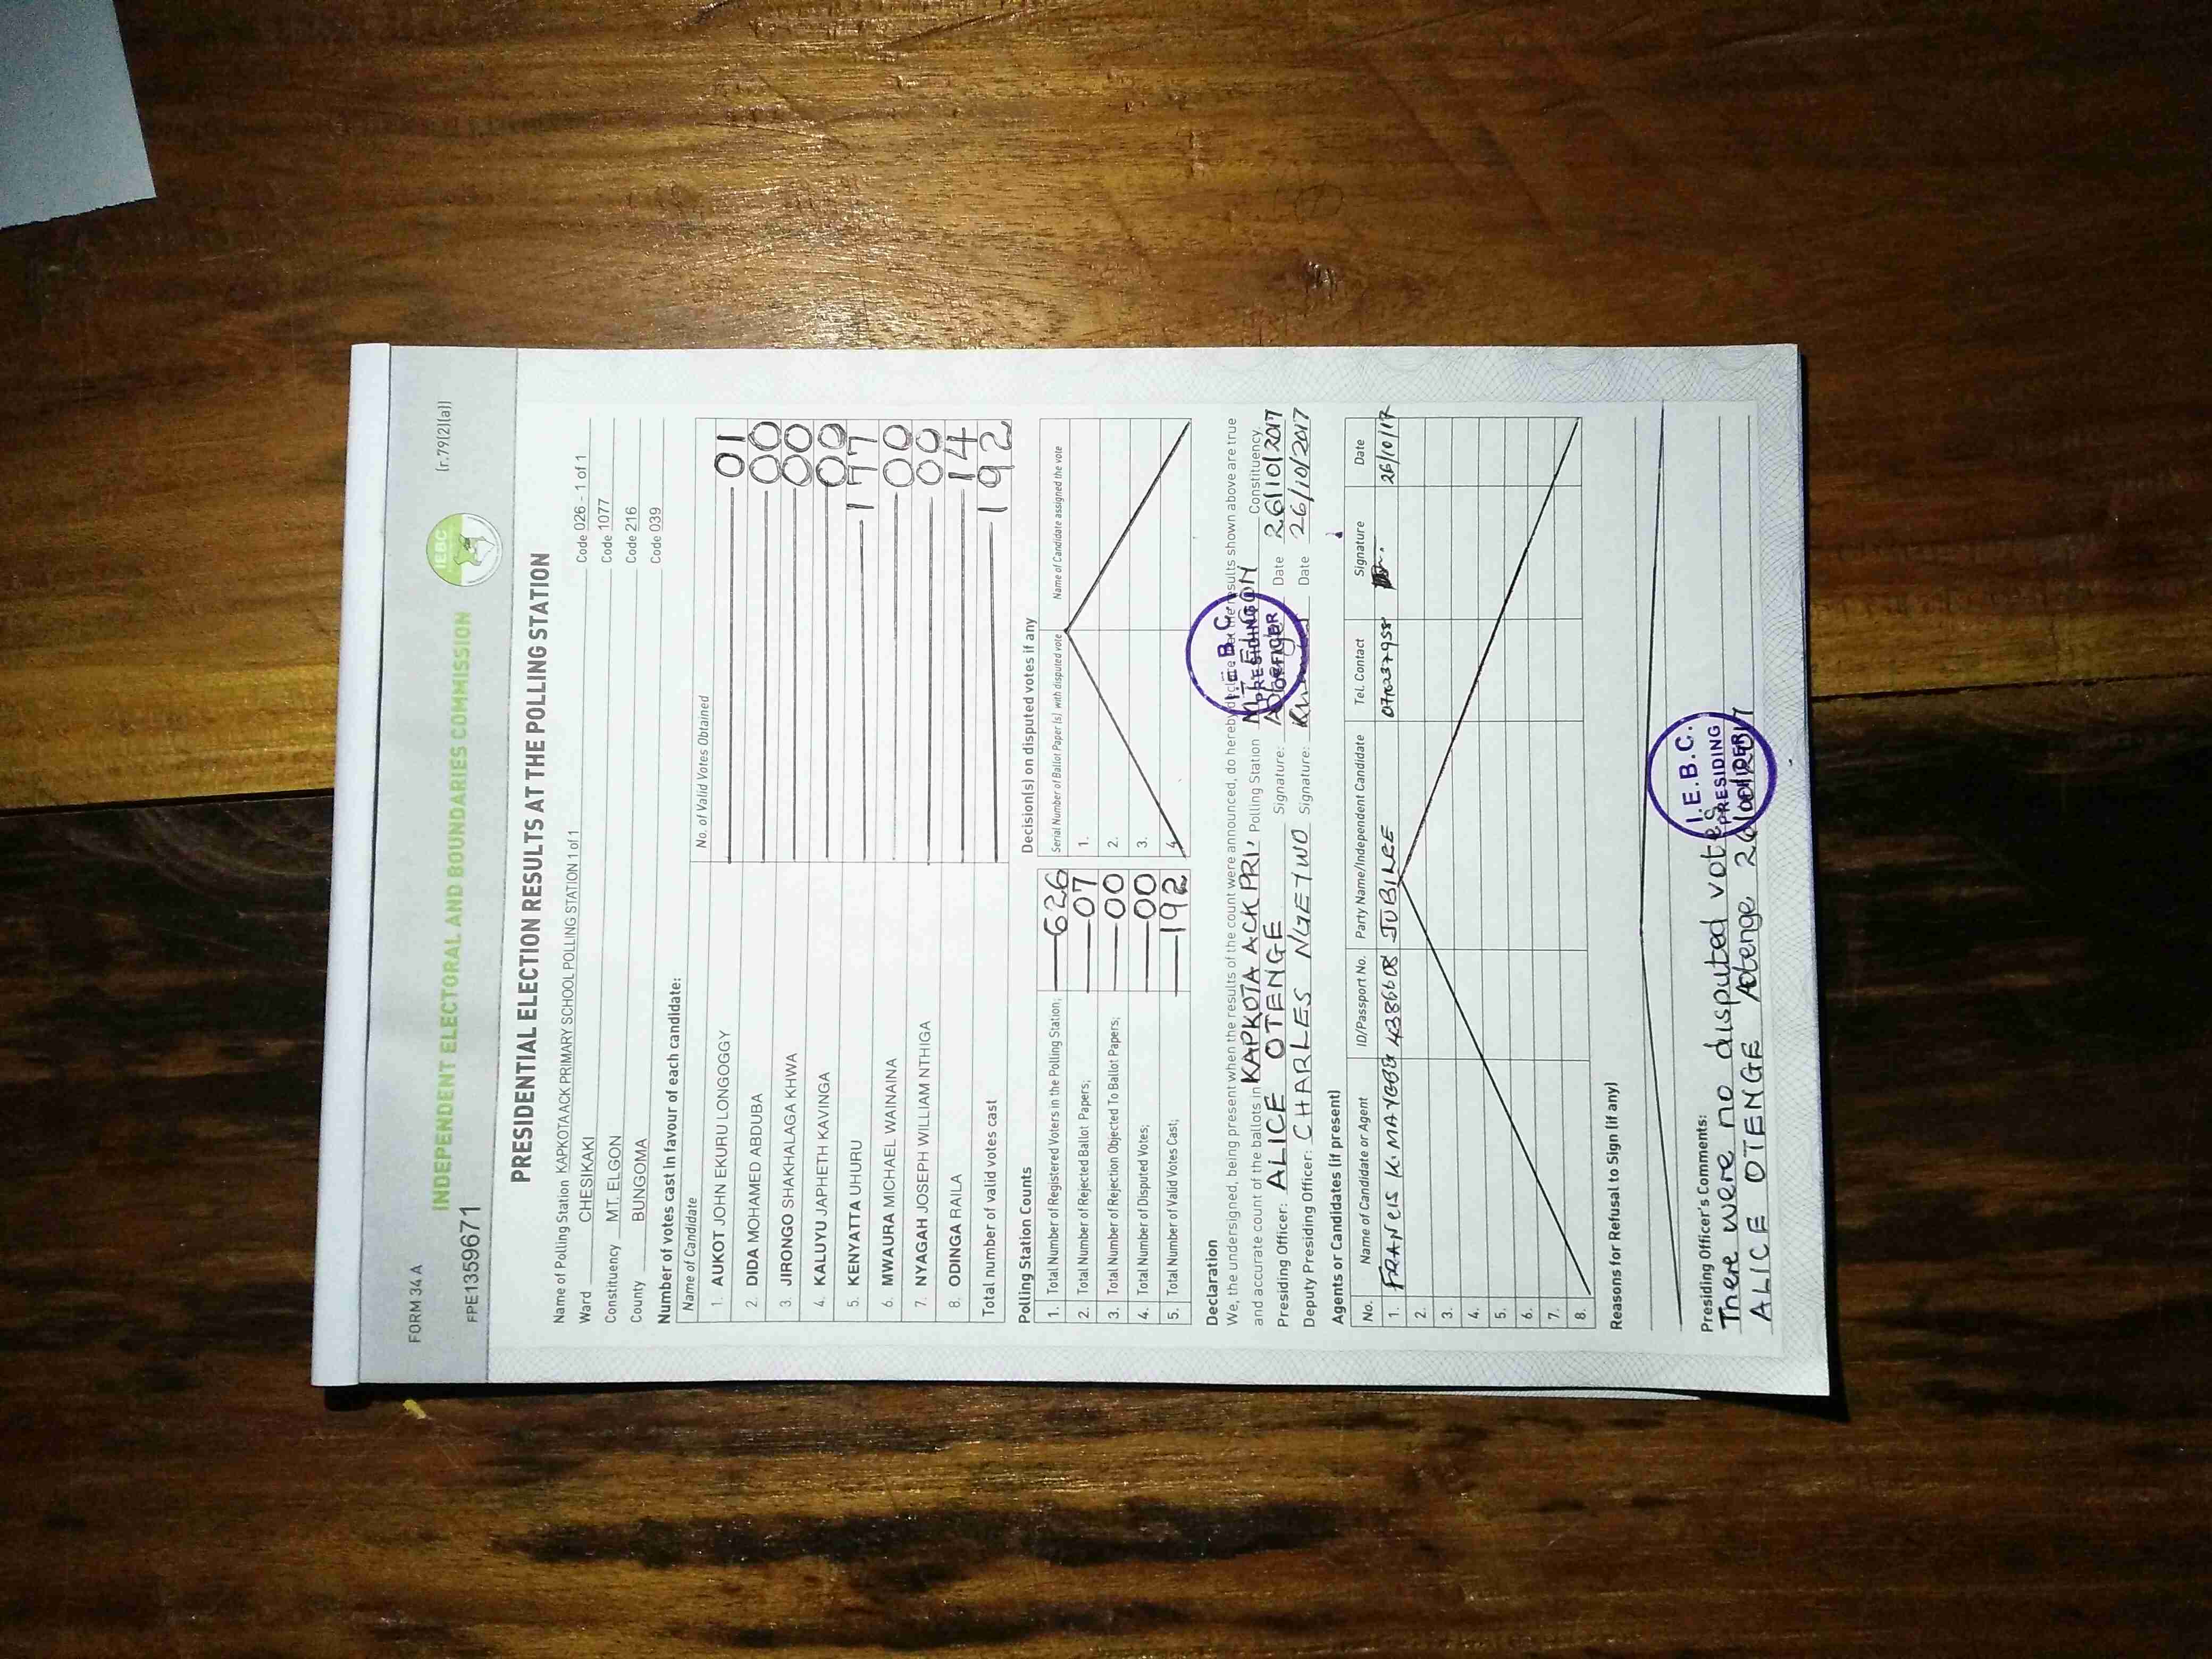 FORM 34 A
(r.79(2)(a))
INDEPENDENT ELECTORAL AND BOUNDARIES COMMISSION
IEBC
FPE1359671
PRESIDENTIAL ELECTION RESULTS AT THE POLLING STATION
Name of Polling Station KAPKOTA ACK PRIMARY SCHOOL POLLING STATION 1 of 1 Code 026 - 1 of 1
Ward CHESIKAKI Code 1077
Constituency MT. ELGON Code 216
County BUNGOMA Code 039
Number of votes cast in favour of each candidate:
Name of Candidate No. of Valid Votes Obtained
1. AUKOT JOHN EKURU LONGOGGY 01
2. DIDA MOHAMED ABDUBA 00
3. JIRONGO SHAKHALAGA KHWA 00
4. KALUYU JAPHETH KAVINGA 00
5. KENYATTA UHURU 177
6. MWAURA MICHAEL WAINAINA 00
7. NYAGAH JOSEPH WILLIAM NTHIGA 00
8. ODINGA RAILA 14
Total number of valid votes cast 192
Polling Station Counts
1. Total Number of Registered Voters in the Polling Station; 626
2. Total Number of Rejected Ballot Papers; 07
3. Total Number of Rejection Objected To Ballot Papers; 00
4. Total Number of Disputed Votes; 00
5. Total Number of Valid Votes Cast; 192
Decision(s) on disputed votes if any
Serial Number of Ballot Paper (s) with disputed vote Name of Candidate assigned the vote
1.
2.
3.
4.
Declaration
We, the undersigned, being present when the results of the count were announced, do hereby declare that the results shown above are true
and accurate count of the ballots in KAPKOTA ACK PRI. Polling Station MT ELGON Constituency.
Presiding Officer: ALICE OTENGE Signature: Aotenge Date 26/10/2017
Deputy Presiding Officer: CHARLES NGETWO Signature: Date 26/10/2017
I.E.B.C.
PRESIDING
OFFICER
Agents or Candidates (if present)
No. Name of Candidate or Agent ID/Passport No. Party Name/Independent Candidate Tel. Contact Signature Date
1. FRANCIS K. JUBILEE 26/10/17
2.
3.
4.
5.
6.
7.
8.
Reasons for Refusal to Sign (if any)
Presiding Officer's Comments:
There were no disputed votes
ALICE OTENGE Aotenge 26/10/2017
I.E.B.C.
PRESIDING
OFFICER